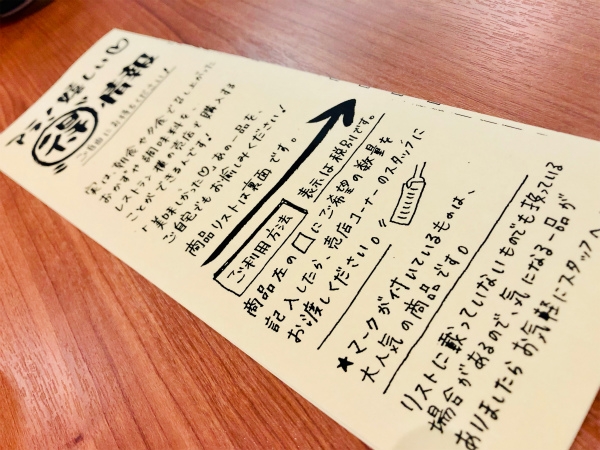 あら!嬉しい
得情報
ご自由にお持ちください!
実は、朝食・夕食で召し上がった
おかずや調味料を、
レストラン横の売店で購入する
ことができるんです!
「美味しかった あの一品を、
ご自宅でもお愉しみください!
商品リストは裏面です。
表示は税別です。
ご利用方法
商品左の□にご希望の数量を
記入したら、売店コーナーのスタッフに
お渡しください。
★マークが付いているものは、
大人気の商品です。
リストに載っていないものでも扱っている
場合があるので、気になる一品が
ありましたらお気軽にスタッフへ